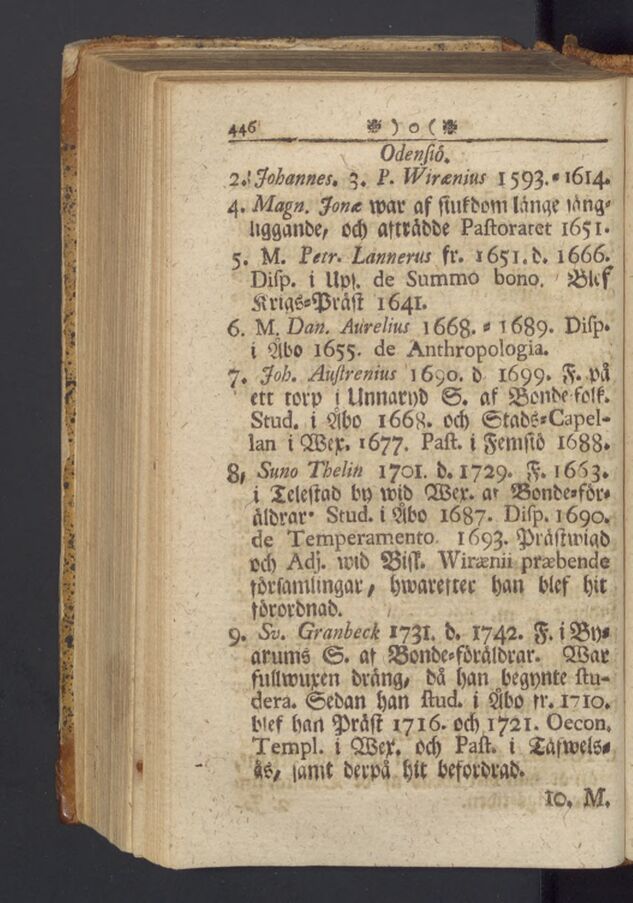 446 ) o (
Odensiö.
2. Johannes. 3. P. Wirænius 1593. = 1614.
4. Magn. Jonæ war af siukdom länge säng=
liggande, och afträdde Pastoratet 1651.
5. M. Petr. Lannerus fr. 1651. d. 1666.
Disp. i Ups. de Summo bono. Blef
Krigs=Präst 1641.
6. M. Dan. Aurelius 1668. = 1689. Disp.
i Åbo 1655. de Anthropologia.
7. Joh. Austrenius 1690. d 1699. F. på
ett torp i Unnaryd S. af Bonde folk.
Stud. i Åbo 1668. och Stads=Capel-
lan i Wex. 1677. Past. i Femsiö 1688.
8, Suno Thelin 1701. d. 1729. F. 1663.
i Telestad by wid Wex. af Bonde=för=
äldrar. Stud. i Åbo 1687. Disp. 1690.
de Temperamento 1693. Prästwigd
och Adj. wid Bisk. Wirænii præbende
församlingar, hwarefter han blef hit
förordnad.
9. Sv. Granbeck 1731. d. 1742. F. i By=
arums S. af Bonde=föräldrar. War
fullwuxen dräng, då han begynte stu-
dera. Sedan han stud. i Åbo fr. 1710.
blef han Präst 1716. och 1721. Oecon.
Templ. i Wex. och Past. i Tåfwels=
ås, samt derpå hit befordrad.
10. M.